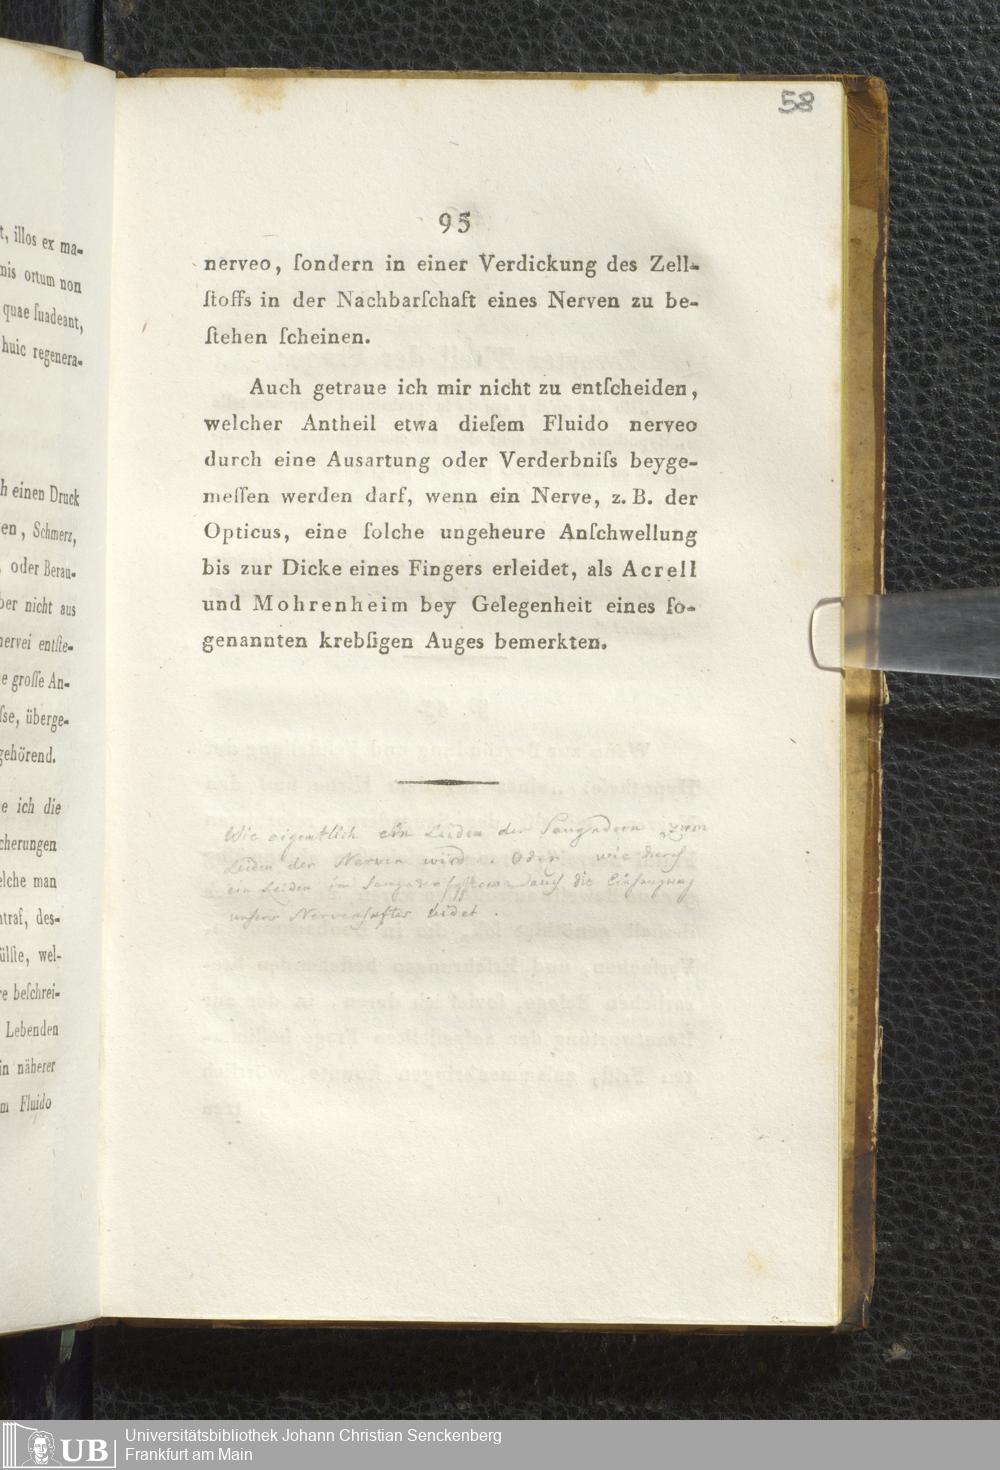 t, illos ex ma-
nis ortum non
quae ſuadeant,
huic regenera-
h einen Druck
en, Schmerz,
oder Berau-
ber nicht aus
nervei entſte-
e groſſe An-
ſse, überge-
gehörend.
e ich die
cherungen
elche man
ntraf, des-
ülſte, wel-
re beſchrei-
Lebenden
in näherer
m Fluido
58
95
nerveo, ſondern in einer Verdickung des Zell-
ſtoffs in der Nachbarſchaft eines Nerven zu be-
ſtehen ſcheinen.
Auch getraue ich mir nicht zu entſcheiden,
welcher Antheil etwa dieſem Fluido nerveo
durch eine Ausartung oder Verderbniſs beyge-
meſſen werden darf, wenn ein Nerve, z. B. der
Opticus, eine ſolche ungeheure Anſchwellung
bis zur Dicke eines Fingers erleidet, als Acrell
und Mohrenheim bey Gelegenheit eines ſo-
genannten krebſigen Auges bemerkten.
Wie eigentlich ein Leiden der Saugadern zum
Leiden der Nerven wird. Oder wie durch
ein Leiden im Saugaderſyſtem auch die Einſaugung
unſers Nervenſaftes leidet.
UB
Universitätsbibliothek Johann Christian Senckenberg
Frankfurt am Main